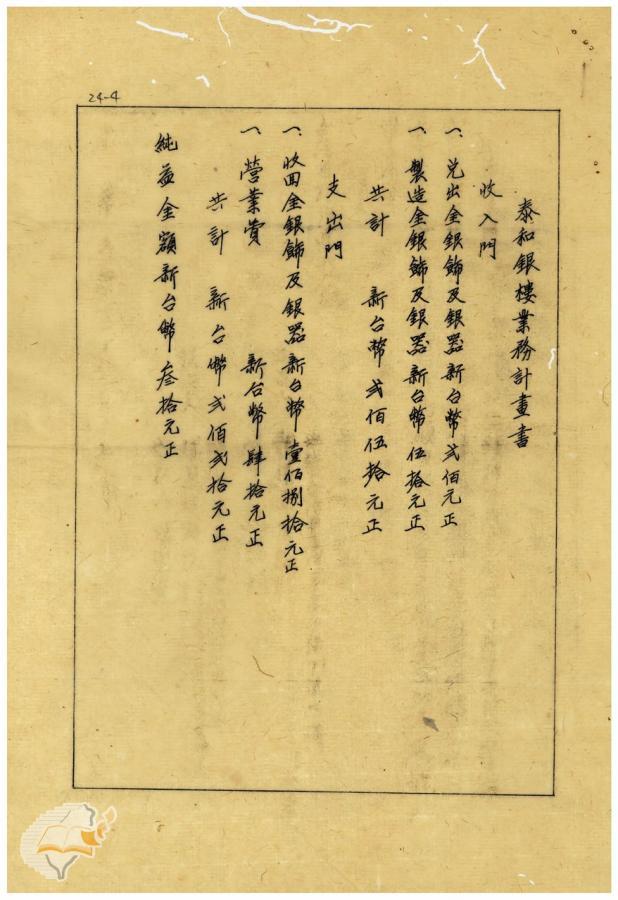 24-4
泰和銀樓業務計畫書
收入門
一、兌出金銀飾及銀器新台幣弍佰元正
一、製造金銀飾及銀器新台幣伍拾元正
共計 新台幣弍佰伍拾元正
支出門
一、收回金銀飾及銀器新台幣壹佰捌拾元正
一、營業費 新台幣肆拾元正
共計 新台幣弍佰弍拾元正
純益金額新台幣叁拾元正